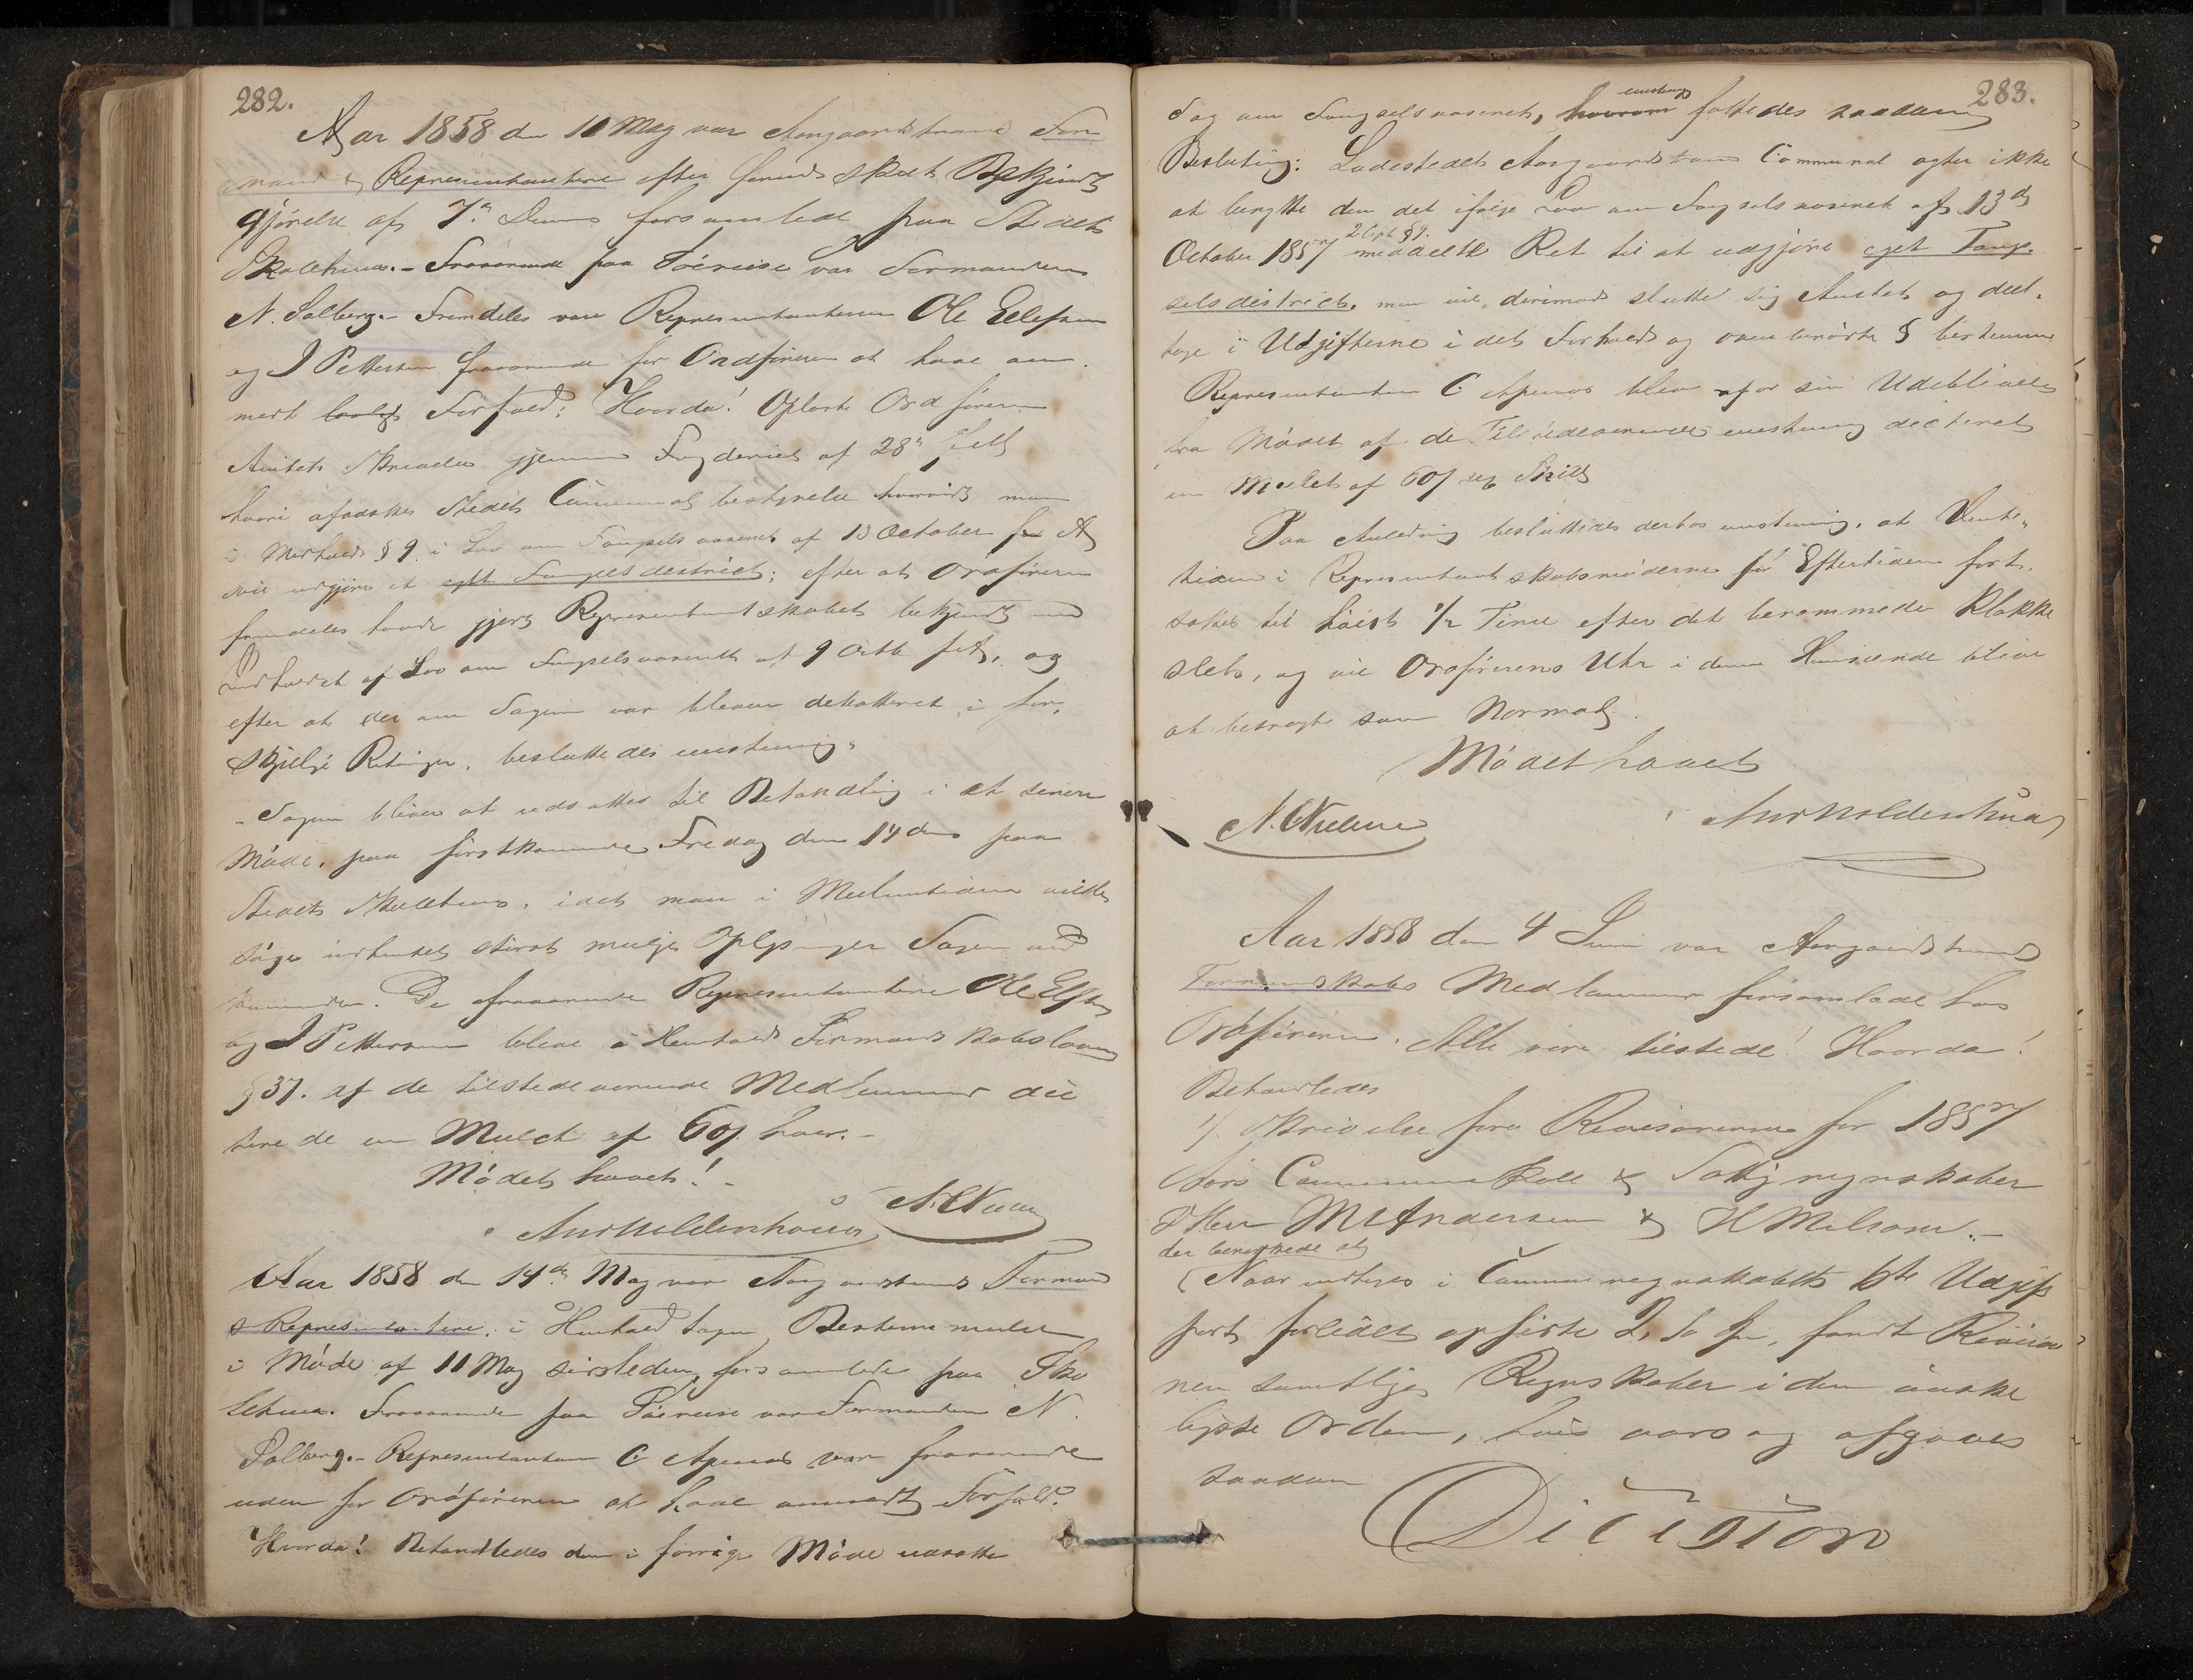 282.
Aar 1858 den 10 May var Aasgaardstrand For-
mænd & Repræsentantere efter forud skedt Bekjendt
gjørelse af 7de Dennes forsamlede paa Stedets
Skolehuus. - Fraværende paa Søereise var Formanden
N. Solberg. - Fremdeles vare Repræsentanterne Ole Ellefsen
og J Pettersen fraværende for Ordføreren at have an-
meldt lovligt Forfald: Hvorda! Oplæste Ordføreren
Amtets Skrivelse gjennem Fogderiet af 28de
hvori afæskes Stedets Communalbestyrelse hvorvidt man
i Medhold § 9 i Lov om Fængselsvæsenet af 13 October f A
vil udgjøre et eget Fængselsdestrict; efter at Ordføreren
fremdeles havde gjort Repræsentantskabet bekjendt med
Indholdet af Lov om Fængselsvæsenet af 9 Octb f A, og
efter at der om Sagen var bleven debatteret i for-
skjellige Retninger, besluttedes eenstemmig:
- Sagen bliver at udsættes til Behandling i et senere
Møde, paa førstkommende Fredag den 14 ds paa
Stedets Skolehuus, idet man i Mellemtiden vilde
søge indhentet størst mulige Oplysninger Sagen ved
kommende. De fraværende Repræsentantere Ole Ellefsen
og J Pettersen bleve i Henhold Formandskabsloven
§ 37. af de tilstedeværende Medlemmer dic
terede en Mulct af 60 s hver. -
Mødet hævet! -
N. Nielsen
And Holdenhaus
Aar 1858 den 14de May var Aasgaardstrands Formænd
& Repræsentantere, i Henhold tagen Bestemmelse
i Møde af 10 May sidstleden, forsamlede paa Sko
lehuus. Fraværende paa Søereise var Formanden N.
Solberg. - Repræsentanten C Apenæs var fraværende
uden for Ordføreren at have anmeldt Forfald.
Hvorda! Behandledes den i forrige Møde udsatte
283.
Sag om Fængselsvæsenet, hvorom eenstemmig fattedes saadan
Beslutning: Ladestedet Aasgaardstrands Communal agter ikke
at benytte den det ifølge Lov om Fængselsvæsenet af 13de
October 1857 2 Cap. § 9. meddeelte Ret til at udgjøre eget Fæng-
selsdistrict, men vil derimod slutte sig Amtet og deel-
tage i Udgifterne i det Forhold og ovenberørte § bestemme
Repræsentanten C Apenæs blev for sin Udeblivelse
fra Mødet af de Tilstedeværende eenstemmig dicteret
en Mulct af 60 s sex Skill
Paa Anledning besluttedes derhos eenstemmig, at Vente-
tiden i Repræsentantskabsmøderne for Eftertiden fast-
sættes til høist 1/2 Time efter det berammede Klokke
slet, og vil Ordførerens Uhr i denne Henseende blive
at betragte som Normal.
Mødet hævet
N. Nielsen
And Holdenhaus
Aar 1858 den 4 Juni var Aasgaardstrands
Formandskabs Medlemmer forsamlede hos
Ordføreren. Alle vare tilstede! Hvorda!
Behandledes
1/. Skrivelse fra Revisorerne for 1857
Aars Commune Skole & Fattigregnskaber
D'Herr M Andersen & H Melsom. -
der bemærkede at
Naar undtages i Communeregnskabets 6te Udgifts
post forledet opførte fandt Revisio
nen samtlige Regnskaber i den ønske
ligste Orden, hvis aarsag afgaves
saadan
Dicision